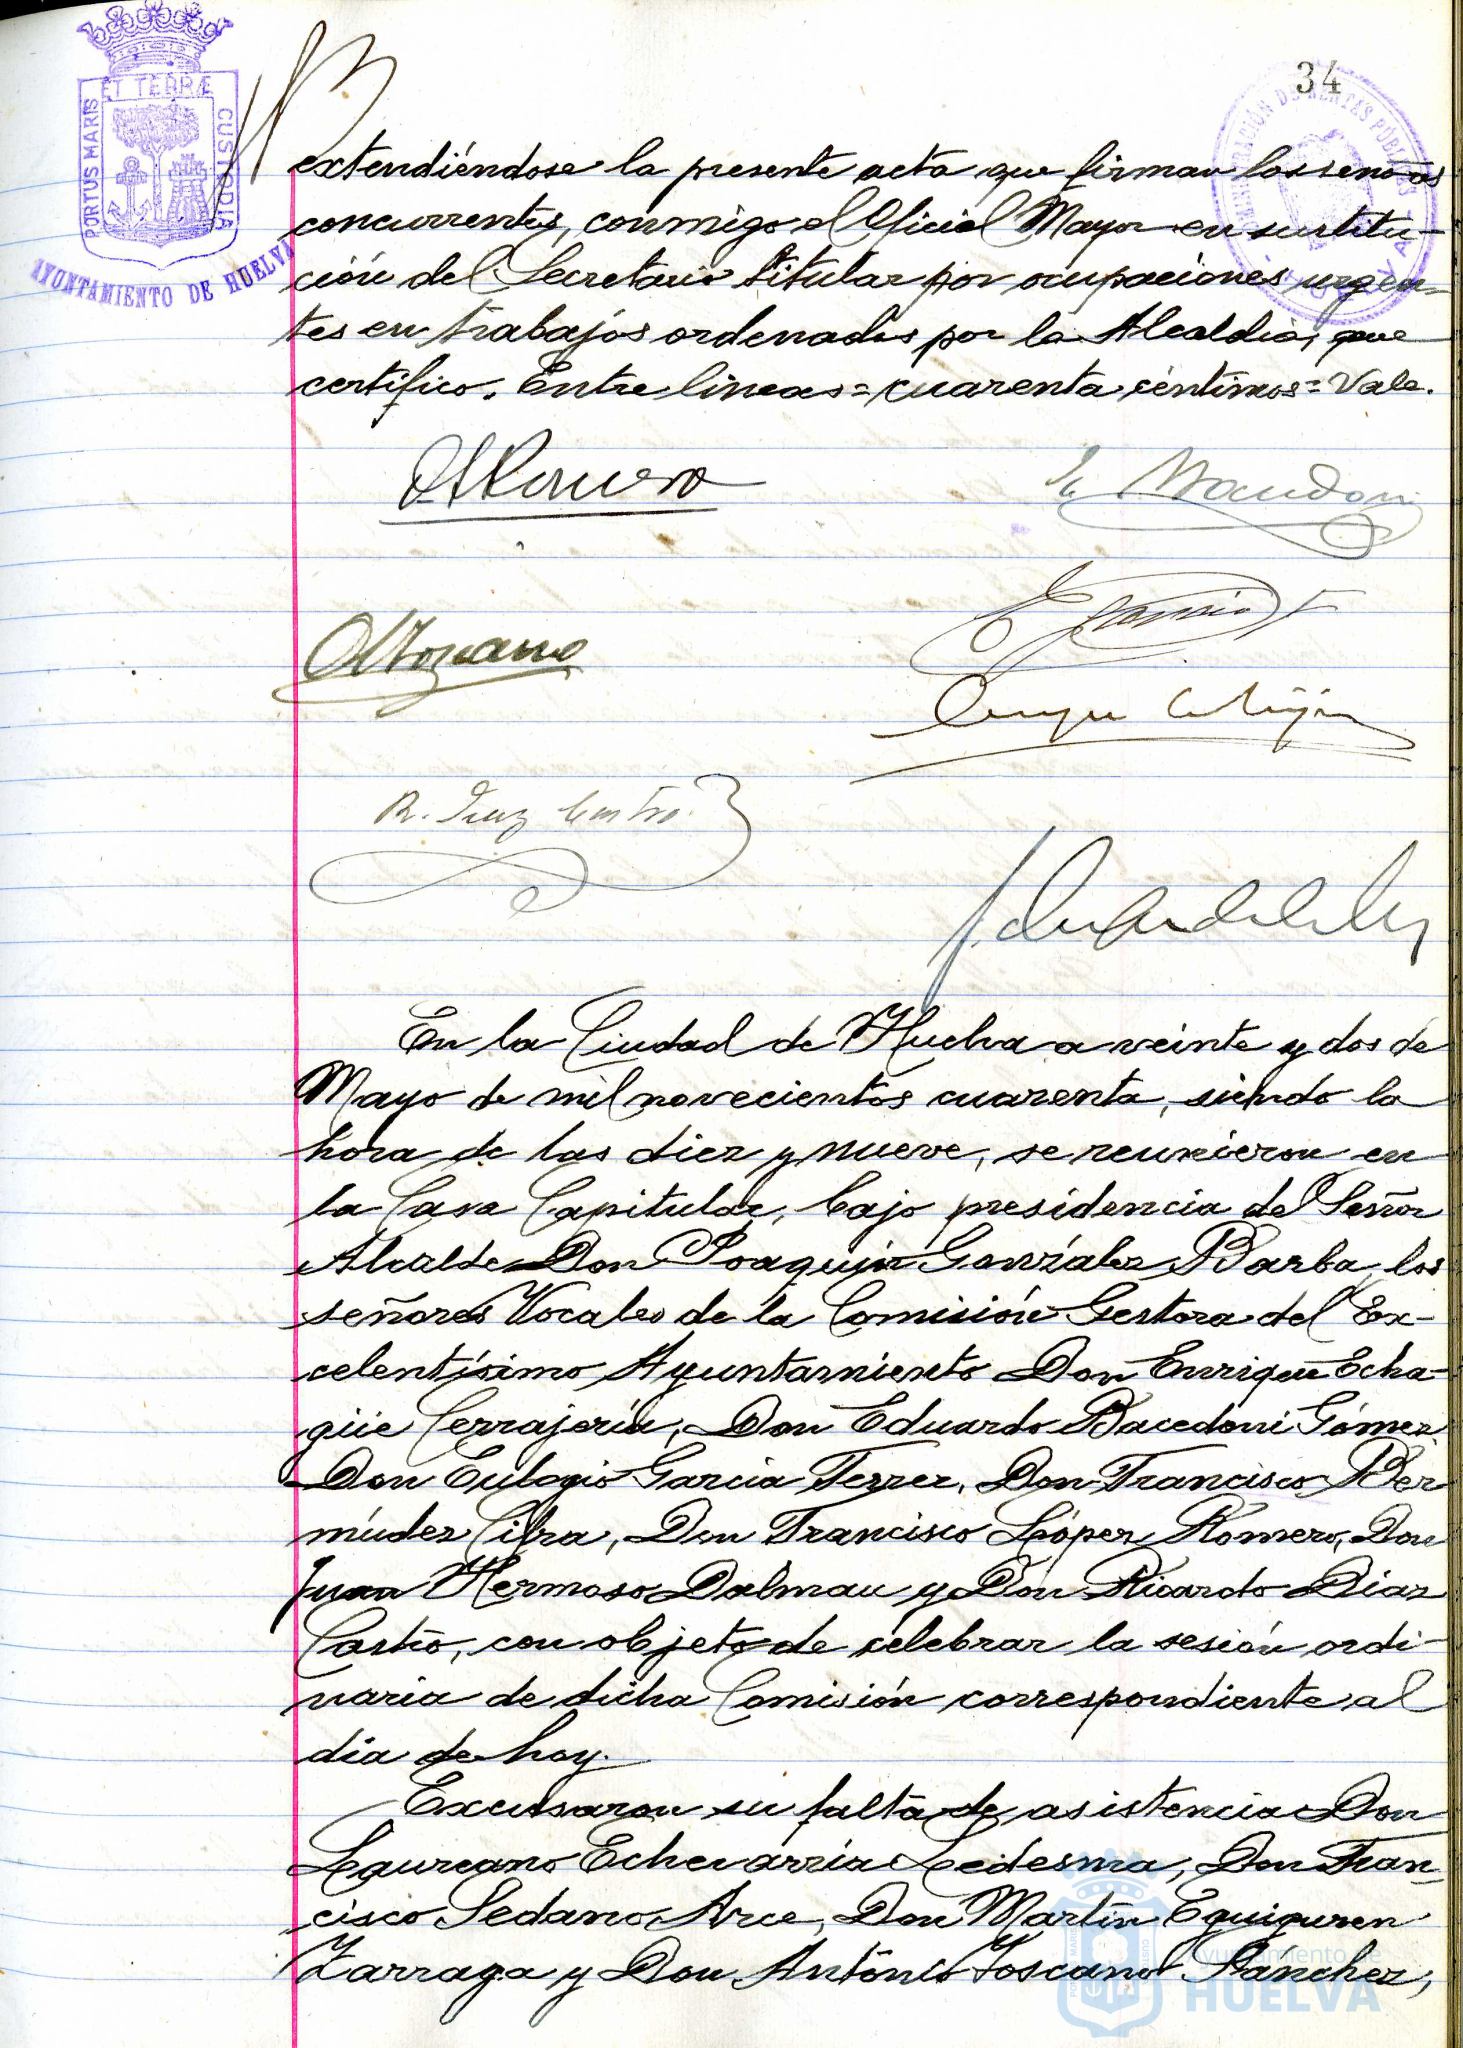 34
ET TERRÆ
PORTUS MARIS
CUSTODIA
AYUNTAMIENTO DE HUELVA
extendiéndose la presente acta que firman los señores
concurrentes, conmigo el Oficial Mayor en sustitu-
ción del Secretario titular por ocupaciones urgen-
tes en trabajos ordenados por la Alcaldia, que
certifico. Entre lineas = cuarenta céntimos = Vale.
R. Diaz Castro
En la Ciudad de Huelva a veinte y dos de
Mayo de mil novecientos cuarenta, siendo la
hora de las diez y nueve, se reunieron en
la Casa Capitular, bajo presidencia del Señor
Alcalde Don Joaquin González Barba, los
señores Vocales de la Comisión Gestora del Ex-
celentísimo Ayuntamiento Don Enrique Echa-
güe Cerrajería, Don Eduardo Bacedoni Gómez,
Don Eulogio Garcia Ferrer, Don Francisco Ber
múdez Cilra, Don Francisco López Romero, Don
Juan Hermoso Dalmau y Don Ricardo Diaz
Castro, con objeto de celebrar la sesión ordi-
naria de dicha Comisión correspondiente al
dia de hoy.
Excusaron su falta de asistencia Don
Laureano Echevarría Ledesma, Don Fran-
cisco Sedano Arce, Don Martín Eguiguren
Zarraga y Don António Toscano Sánchez,
Ayuntamiento de
HUELVA